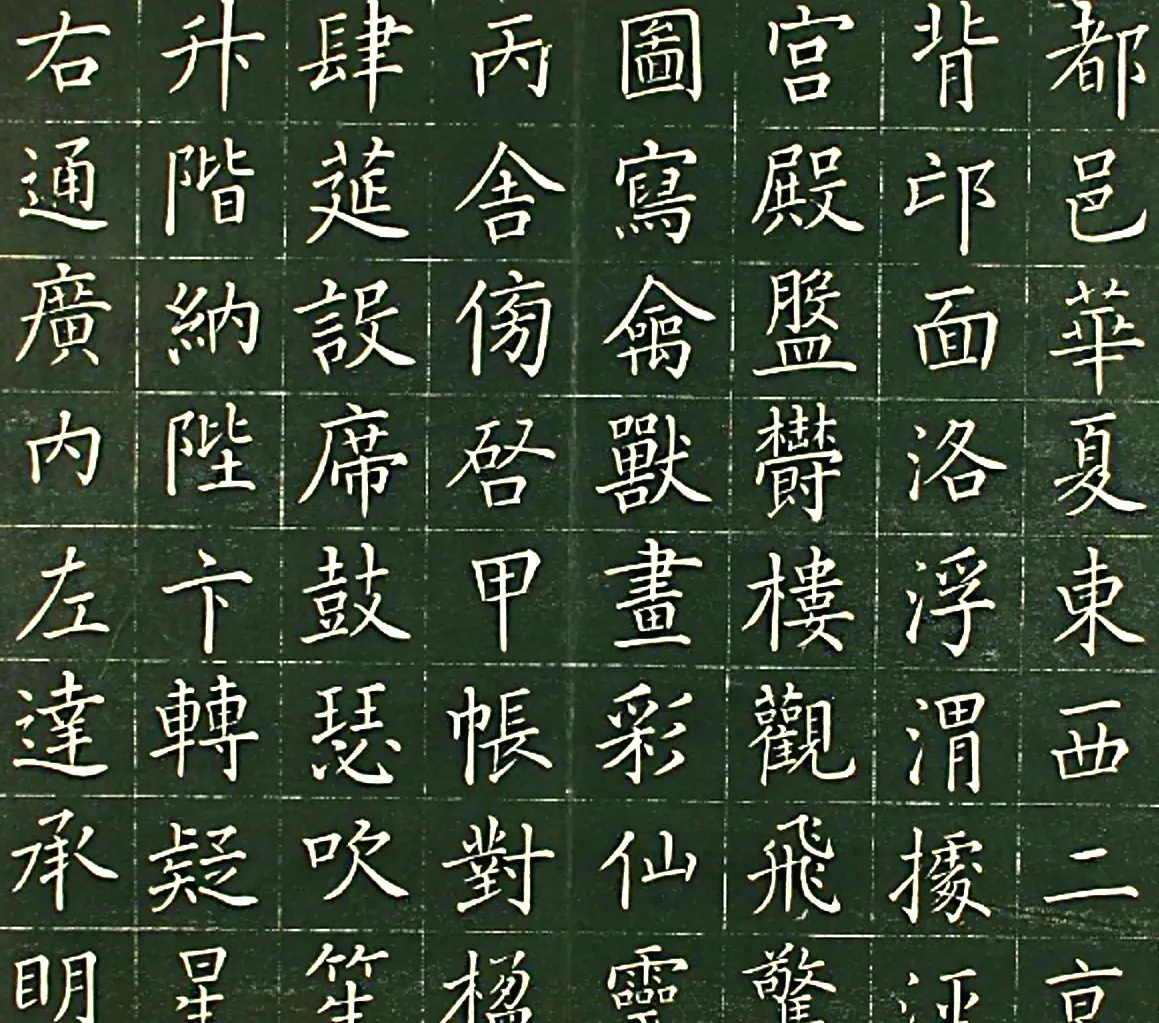 都邑華夏東西二京
背邙面洛浮渭據涇
宮殿盤欝樓觀飛驚
圖寫禽獸畫彩仙靈
丙舍傍啓甲帳對楹
肆莚設席鼓瑟吹笙
升階納陛卞轉疑星
右通廣內左達承明